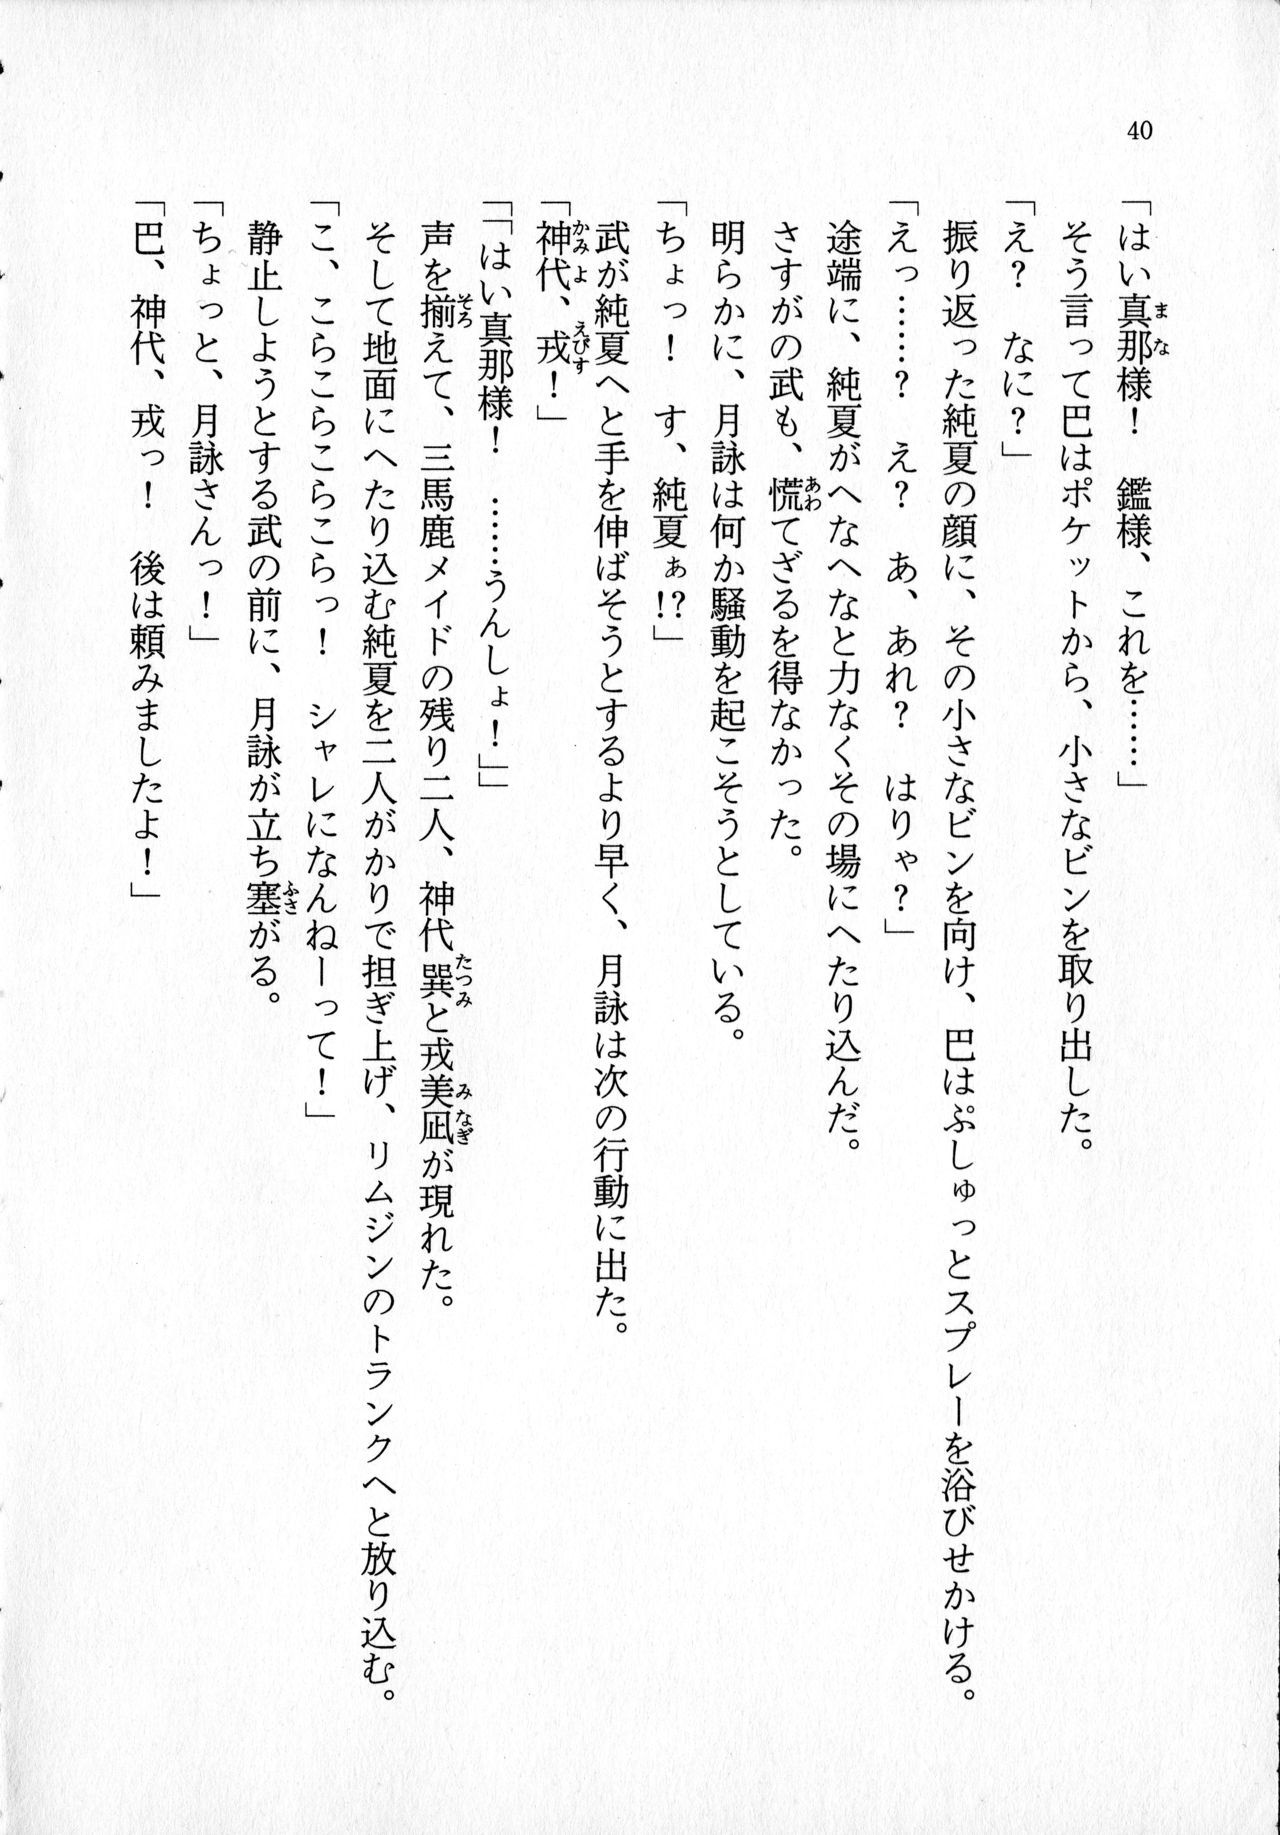 40
「はい真那様！　鑑様、これを……」
そう言って巴はポケットから、小さなビンを取り出した。
「え？　なに？」
振り返った純夏の顔に、その小さなビンを向け、巴はぷしゅっとスプレーを浴びせかける。
「えっ……？　え？　あ、あれ？　はりゃ？」
途端に、純夏がへなへなと力なくその場にへたり込んだ。
さすがの武も、慌てざるを得なかった。
明らかに、月詠は何か騒動を起こそうとしている。
「ちょっ！　す、純夏ぁ!?」
武が純夏へと手を伸ばそうとするより早く、月詠は次の行動に出た。
「神代、戎！」
「「はい真那様！　……うんしょ！」」
声を揃えて、三馬鹿メイドの残り二人、神代巽と戎美凪が現れた。
そして地面にへたり込む純夏を二人がかりで担ぎ上げ、リムジンのトランクへと放り込む。
「こ、こらこらこらこらっ！　シャレになんねーって！」
静止しようとする武の前に、月詠が立ち塞がる。
「ちょっと、月詠さんっ！」
「巴、神代、戎っ！　後は頼みましたよ！」